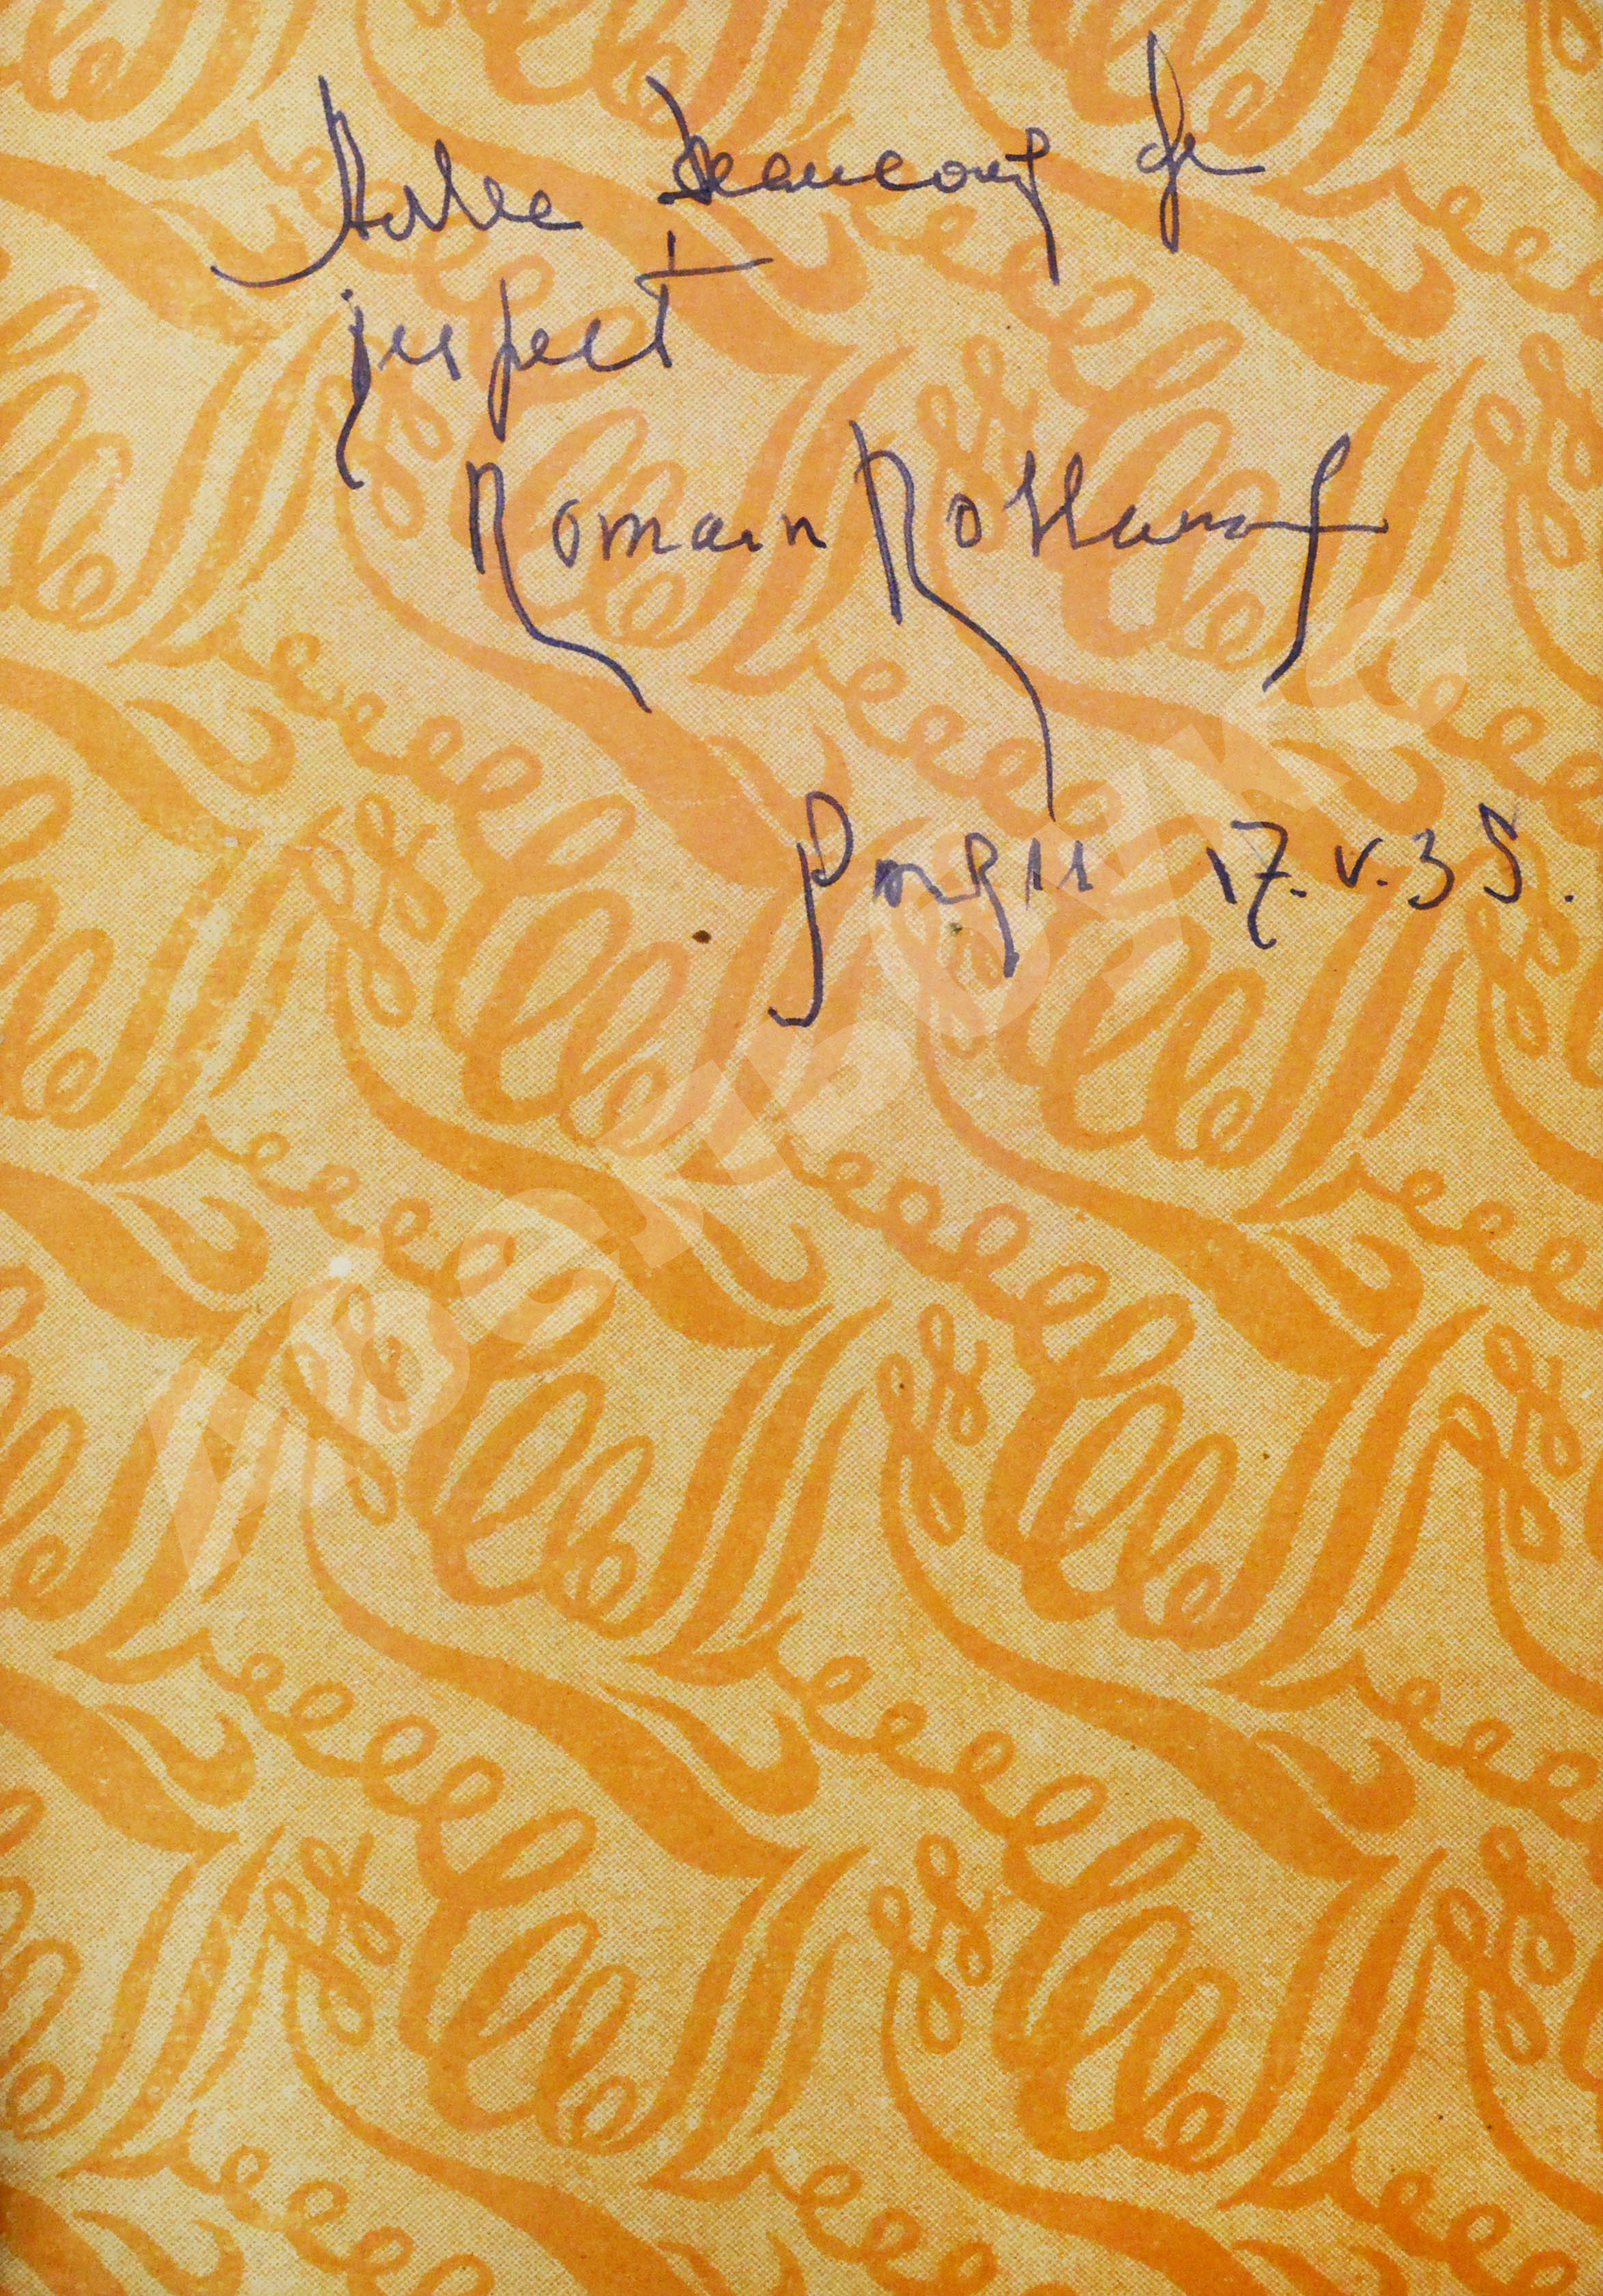 Avec beaucoup de
respect
Romain Rolland
Paris 17.V.35.